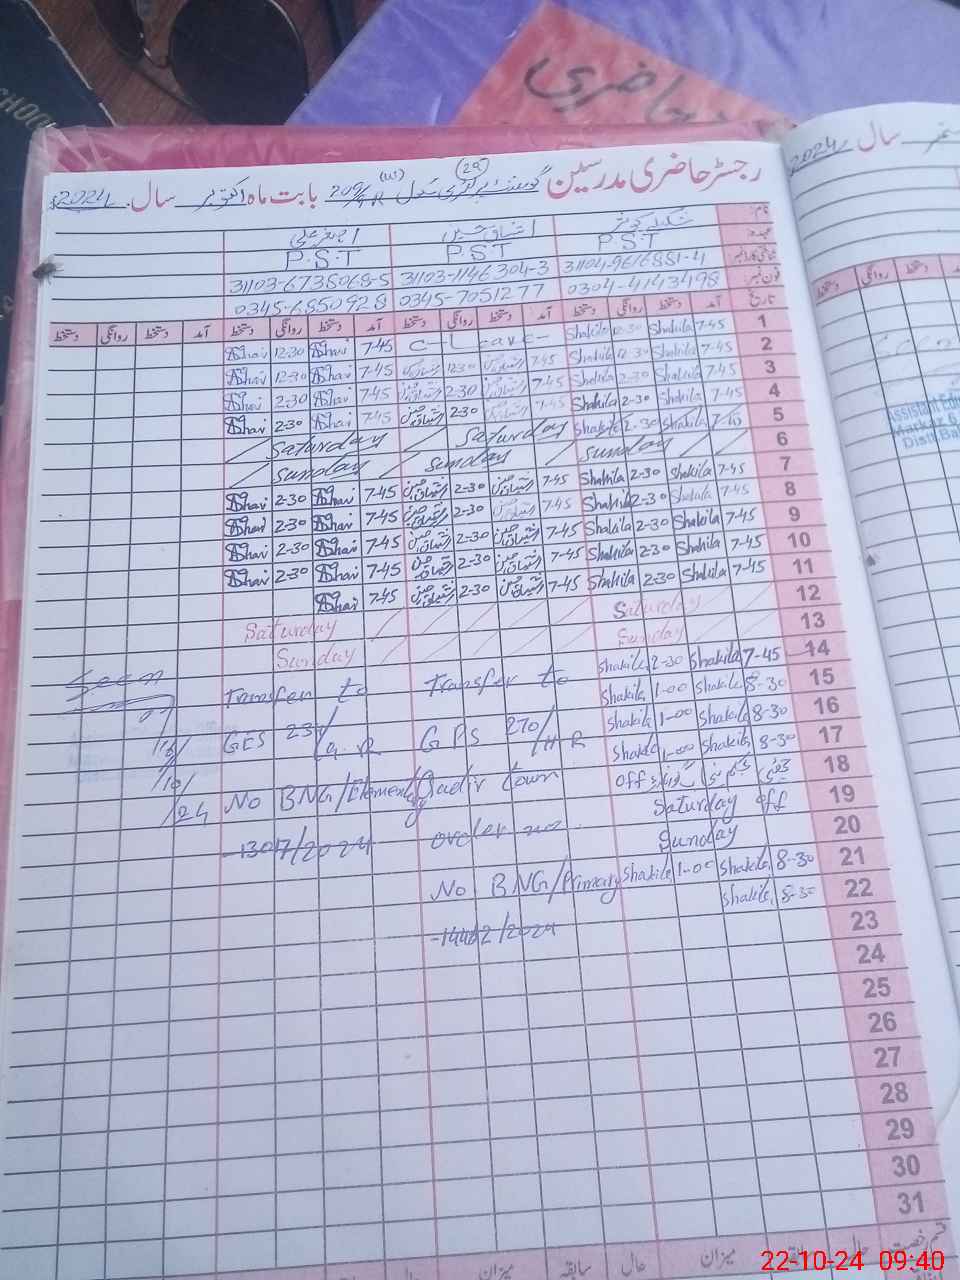 CHOOL
حاضری
رجسٹر حاضری مدرسین (29) گورنمنٹ پرائمری سکول 209/9R (W) بابت ماہ اکتوبر سال 2024
ستمبر سال 2024
نام:
شکیلہ کوثر
اشتیاق حسین
اصغر علی
عہدہ:
P.S.T
P.S.T
P.S.T
شناختی کارڈ نمبر
31104-9616881-4
31103-1146304-3
31103-6738068-5
فون نمبر
0304-4143498
0345-7051277
0345-6850928
تاریخ آمد دستخط روانگی دستخط آمد دستخط روانگی دستخط آمد دستخط روانگی دستخط آمد دستخط روانگی دستخط
1 7-45 Shakila 12-30 Shakila C-Leave- 7-45 12-30
2 7-45 Shakila 12-30 Shakila 7-45 اشتیاق حسین 12-30 اشتیاق حسین 7-45 12-30
3 7-45 Shakila 2-30 Shakila 7-45 اشتیاق حسین 2-30 اشتیاق حسین 7-45 2-30
4 7-45 Shakila 2-30 Shakila 7-45 اشتیاق حسین 2-30 اشتیاق حسین 7-45 2-30
5 Saturday Saturday
6 Sunday Sunday Sunday
7 7-45 Shakila 2-30 Shakila 7-45 اشتیاق حسین 2-30 اشتیاق حسین 7-45 2-30
8 7-45 Shakila 2-30 Shakila 7-45 اشتیاق حسین 2-30 اشتیاق حسین 7-45 2-30
9 7-45 Shakila 2-30 Shakila 7-45 اشتیاق حسین 2-30 اشتیاق حسین 7-45 2-30
10 7-45 Shakila 2-30 Shakila 7-45 اشتیاق حسین 2-30 اشتیاق حسین 7-45 2-30
11 7-45 Shakila 2-30 Shakila 7-45 اشتیاق حسین 2-30 اشتیاق حسین 7-45
12 Saturday Saturday
13 Sunday Sunday
14 7-45 Shakila 2-30 Shakila
15 8-30 Shakila 1-00 Shakila
16 8-30 Shakila 1-00 Shakila
17 8-30 Shakila 1-00 Shakila
18 Off
19 Saturday off
20 Sunday
21 8-30 Shakila 1-00 Shakila
22 8-30 Shakila
23
24
25
26
27
28
29
30
31
Transfer to
GPS 270/HR
Qadir town
order no.
No BNG/Primary
-14482/2024
Transfer to
GES 23
No BNG/Elementry
-13017/2024
Seen
16/10/24
Assistant Edu
Markaz
قسم رخصت حال سابقہ میزان حال سابقہ میزان حال
22-10-24 09:40